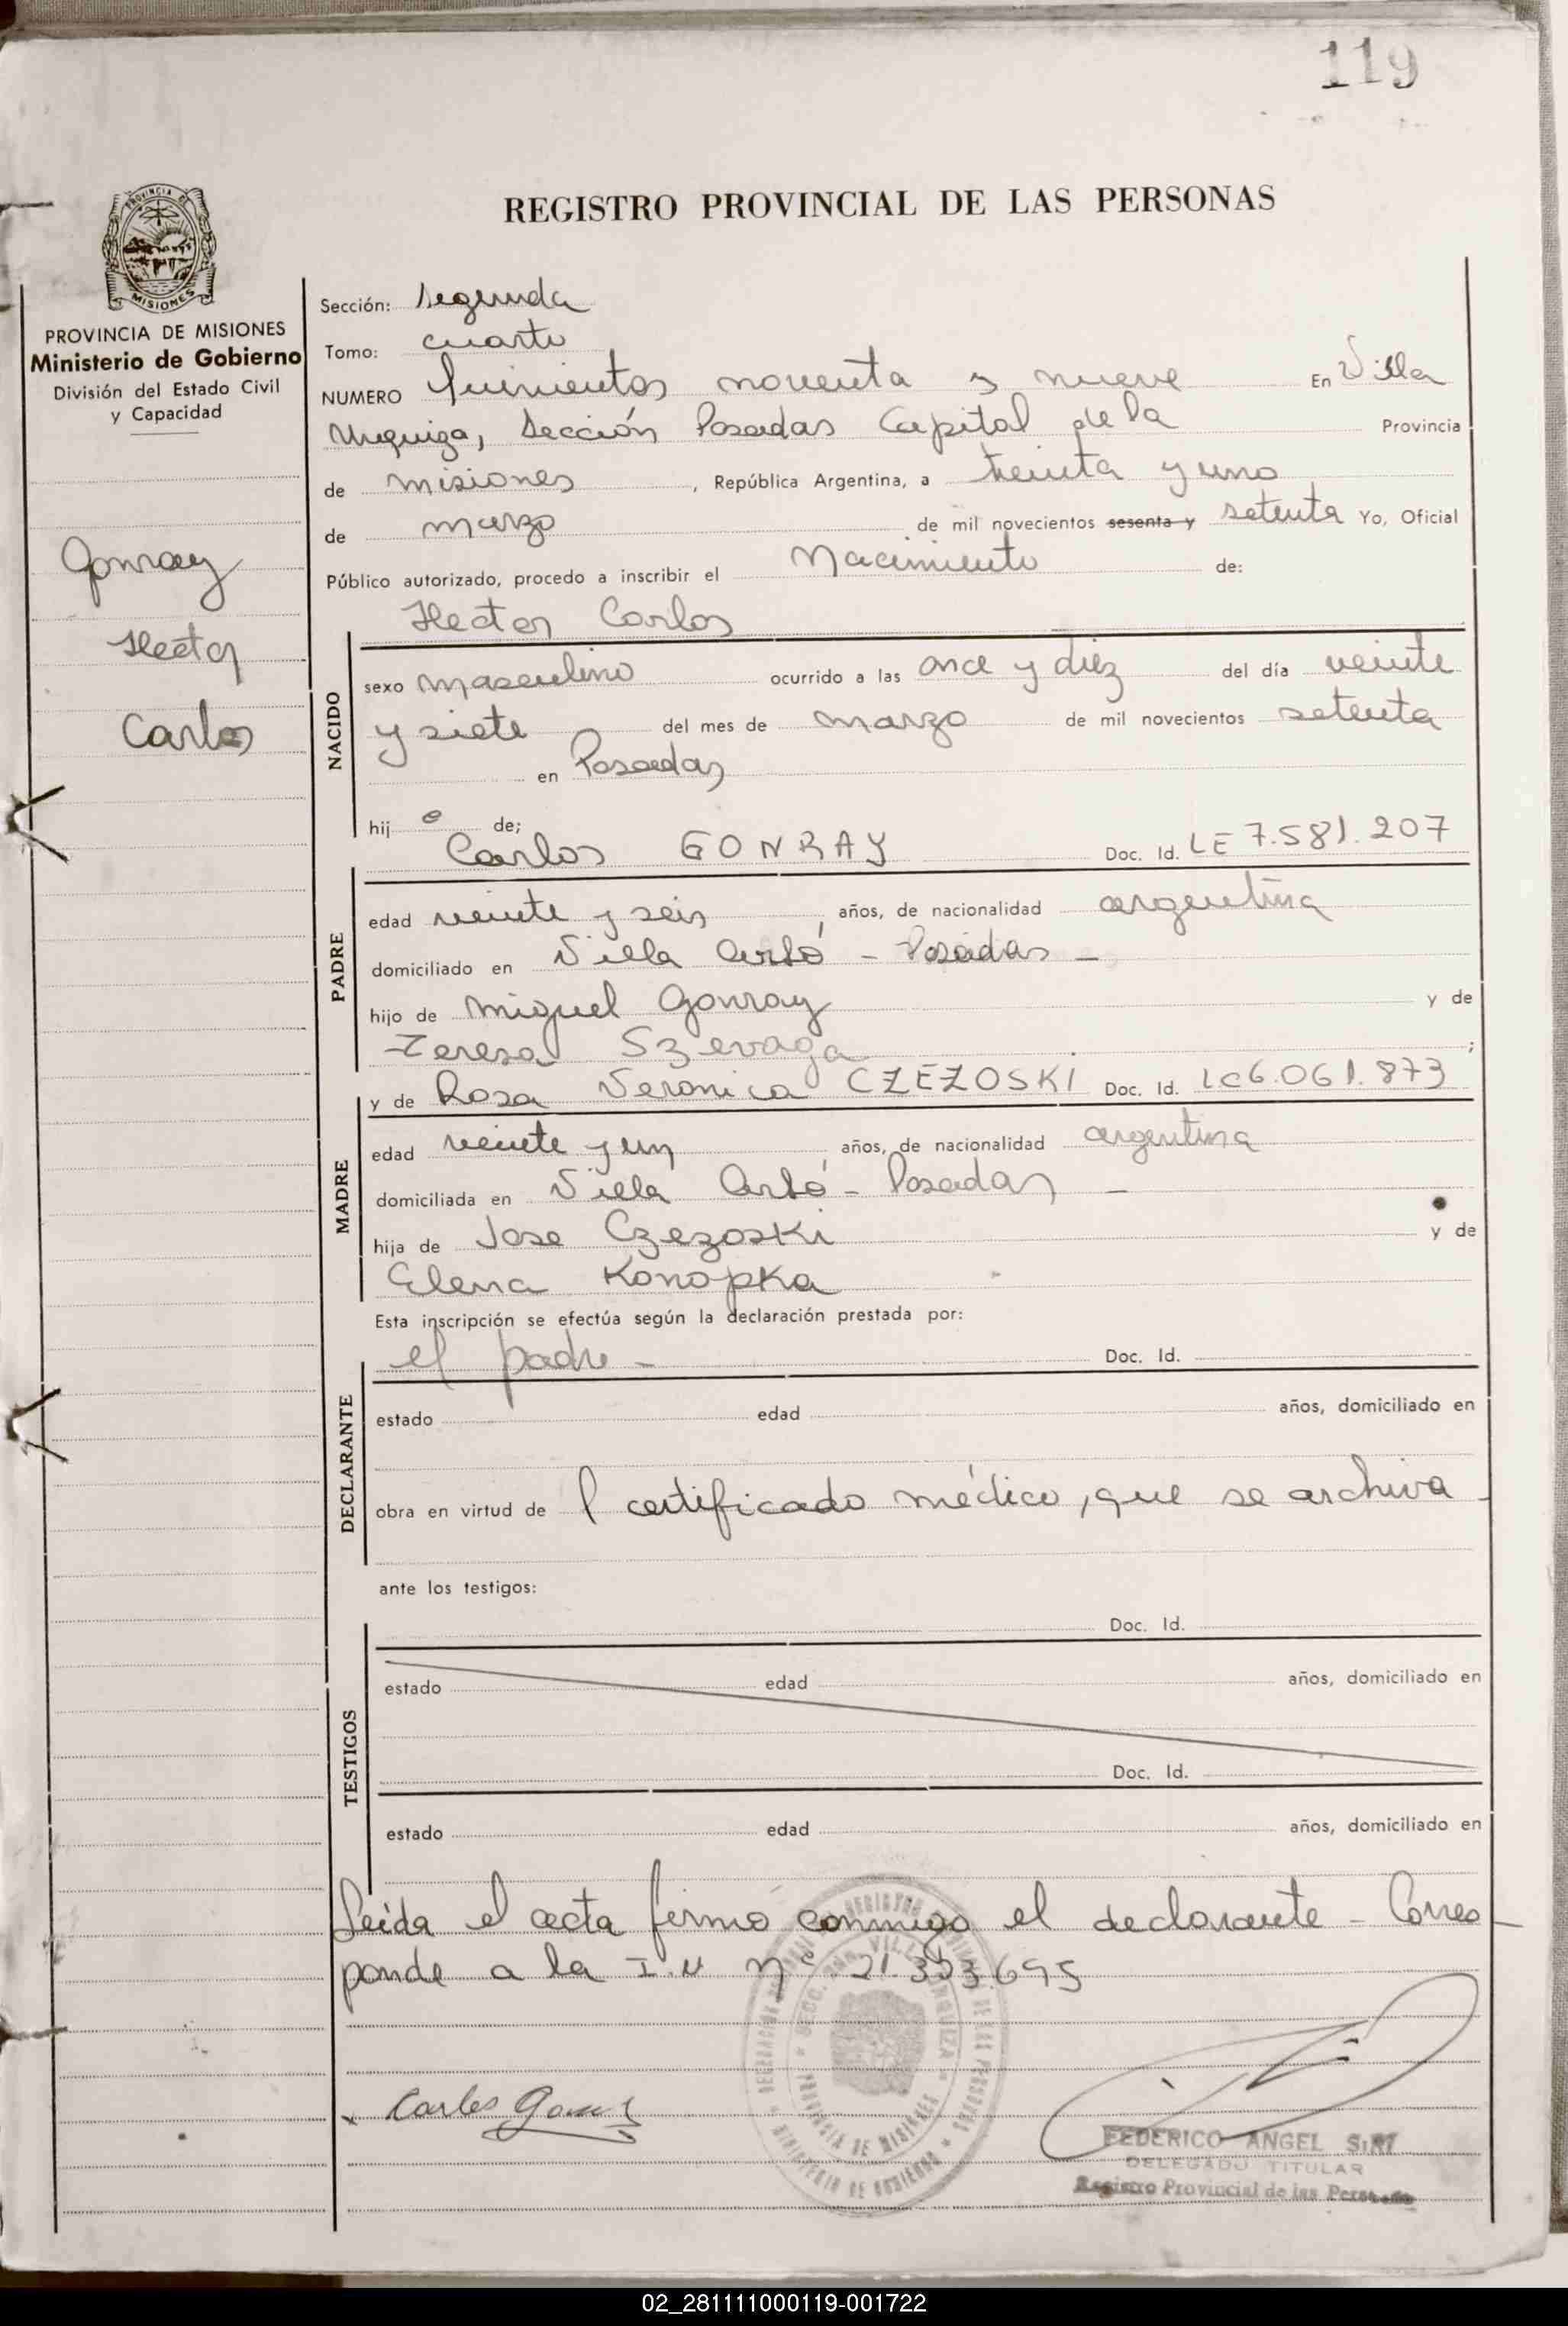 119
REGISTRO PROVINCIAL DE LAS PERSONAS
PROVINCIA DE MISIONES
Ministerio de Gobierno
División del Estado Civil
y Capacidad
Gonray
Hector
Carlos
Sección: Segunda
Tomo: cuarto
NUMERO Quinientos noventa y nueve En Villa
Urquiza, Sección Posadas Capital de la Provincia
de misiones, República Argentina, a treinta y uno
de marzo de mil novecientos sesenta y setenta Yo, Oficial
Público autorizado, procedo a inscribir el Nacimiento de:
Hector Carlos
NACIDO
sexo masculino ocurrido a las once y diez del día veinte
y siete del mes de marzo de mil novecientos setenta
en Posadas
hij o de;
Carlos GONRAY Doc. Id. LE 7.581.207
PADRE
edad veinte y seis, años, de nacionalidad argentina
domiciliado en Villa - Posadas -
hijo de Miguel Gonray y de
Teresa Szevaga;
y de Rosa Veronica CZEZOSKI Doc. Id. LC 6.061.873
MADRE
edad veinte y un años, de nacionalidad argentina
domiciliada en Villa - Posadas -
hija de Jose Czezoski y de
Elena Konopka
Esta inscripción se efectúa según la declaración prestada por:
el padre - Doc. Id.
DECLARANTE
estado edad años, domiciliado en
obra en virtud de l certificado médico, que se archiva
ante los testigos:
Doc. Id.
TESTIGOS
estado edad años, domiciliado en
Doc. Id.
estado edad años, domiciliado en
Leida el acta firma conmigo el declarante - Corres
ponde a la I.N nº 21.303.695
Carlos
FEDERICO ANGEL
DELEGADO TITULAR
Registro Provincial de las Personas
02_281111000119-001722